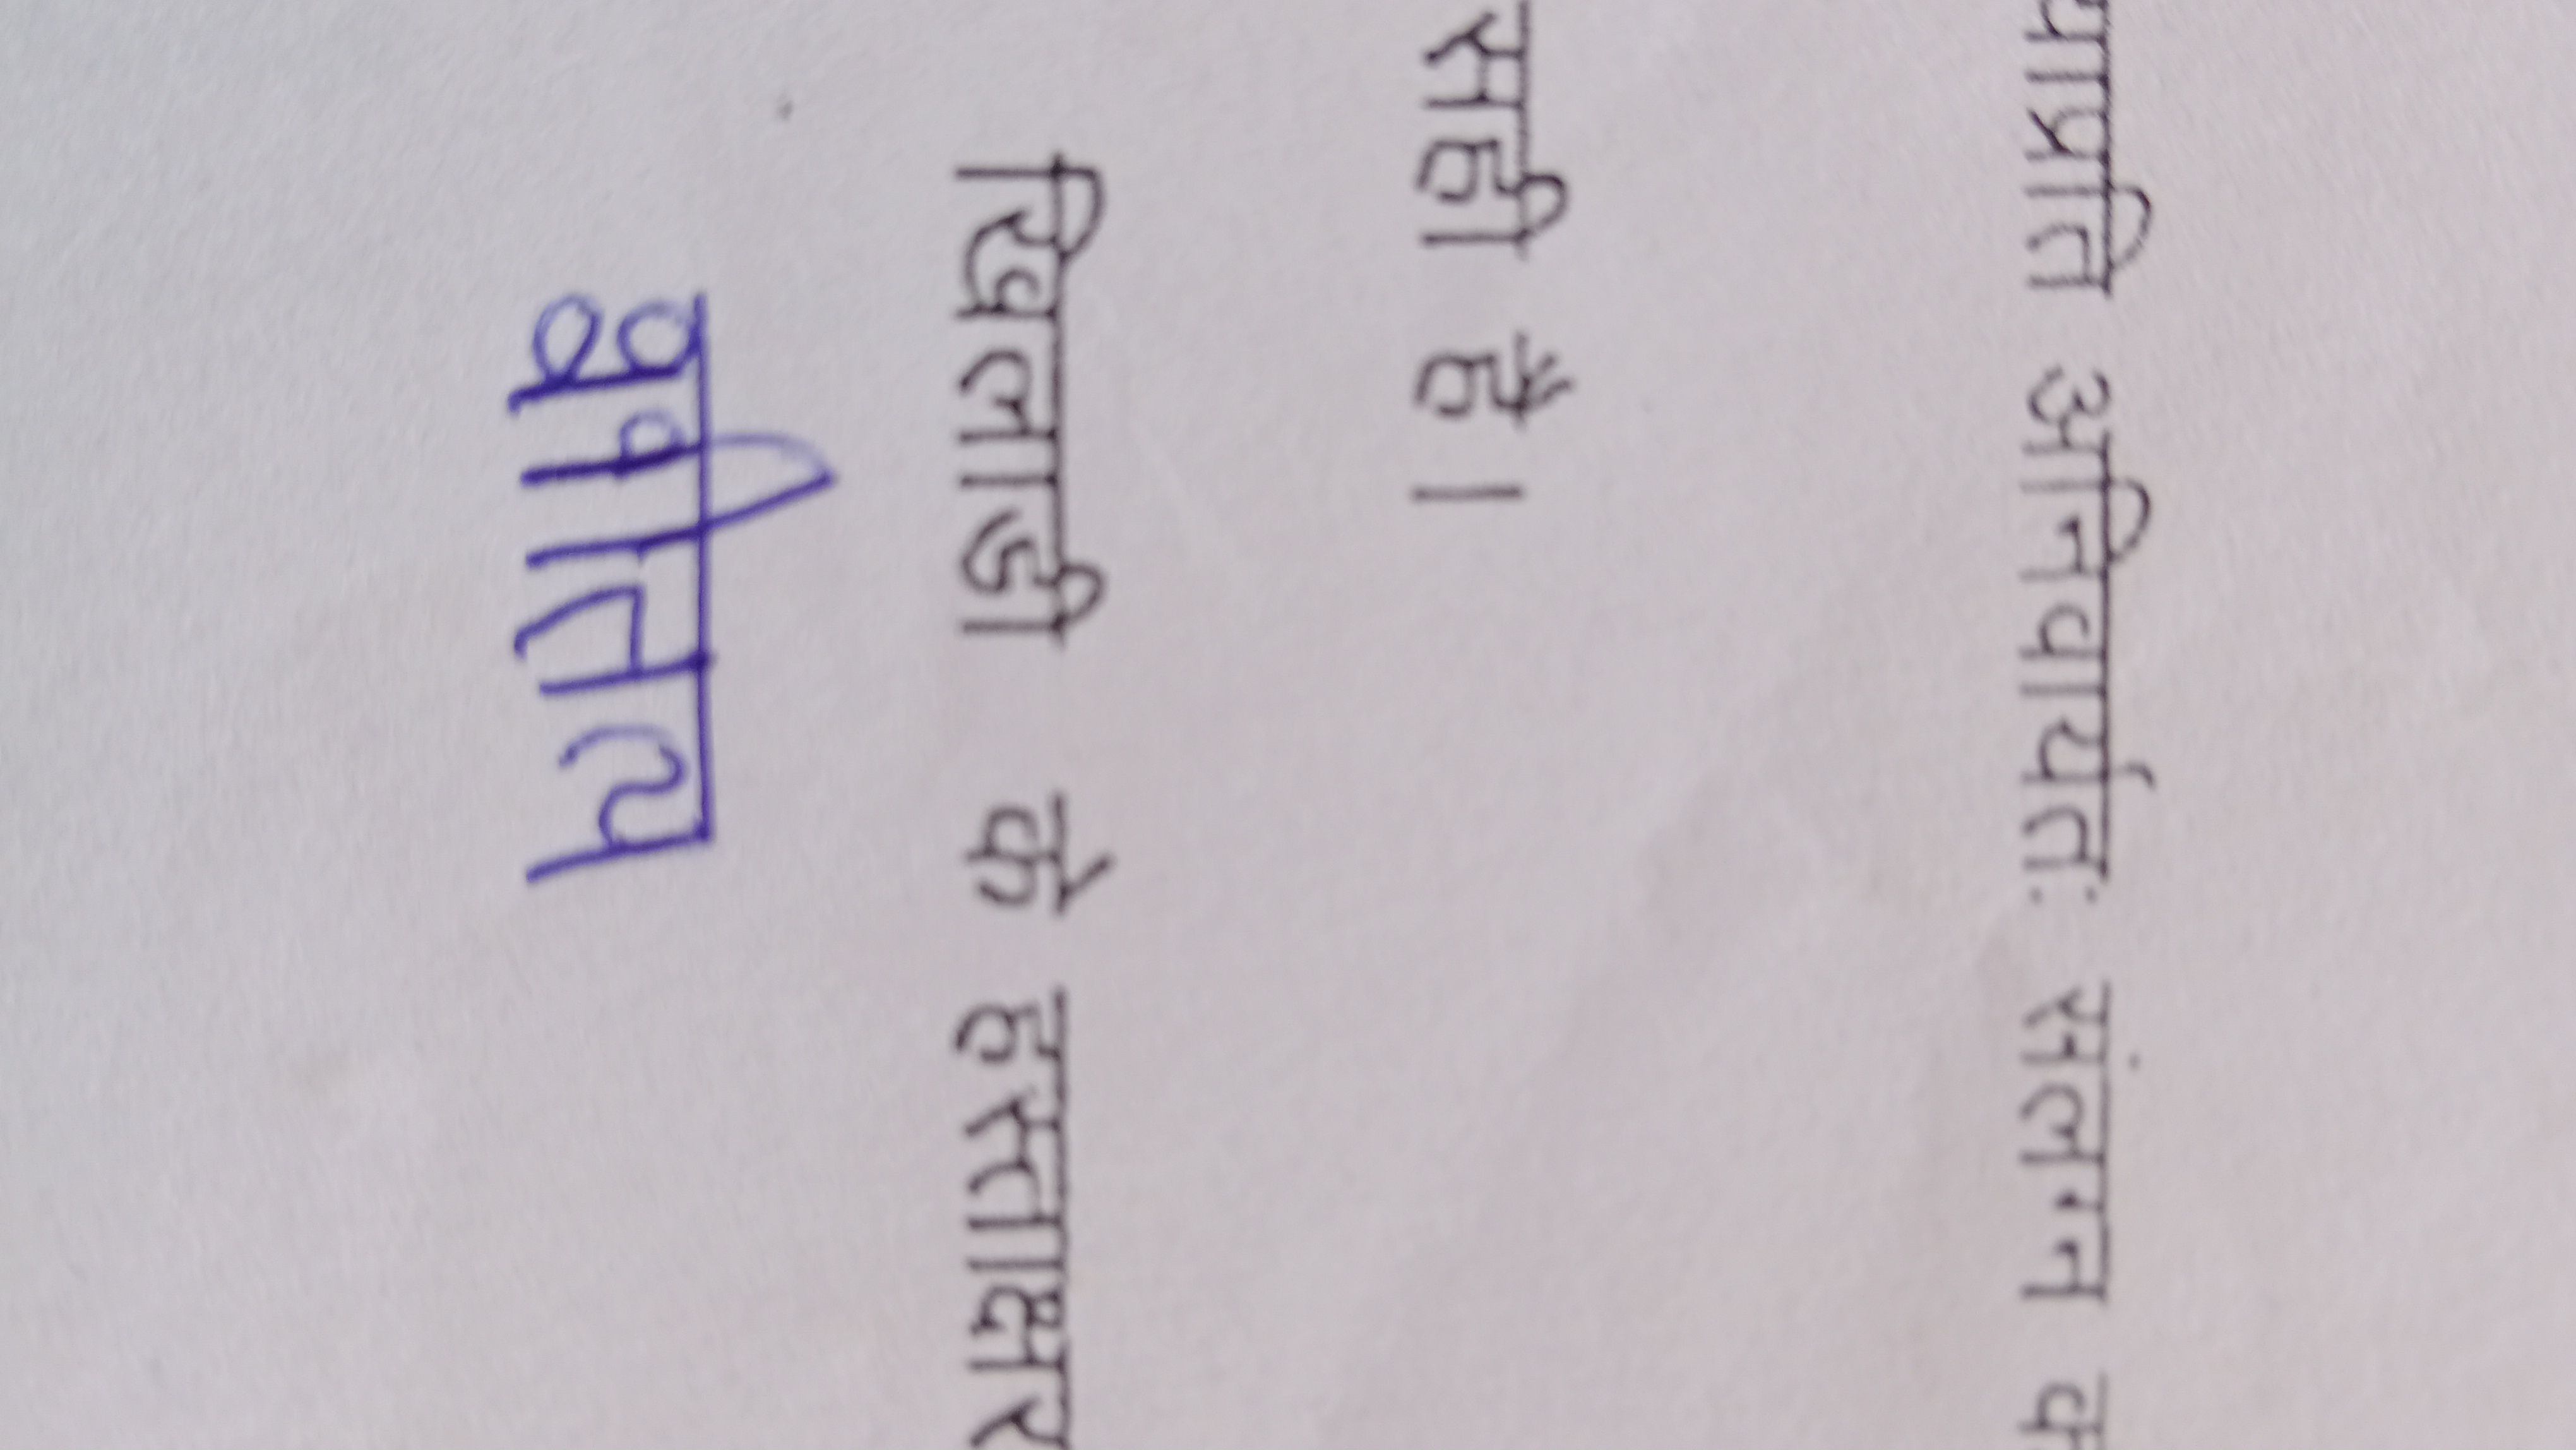 याप्रति अनिवार्यतः संलग्न क
सही है।
खिलाडी के हस्ताक्षर